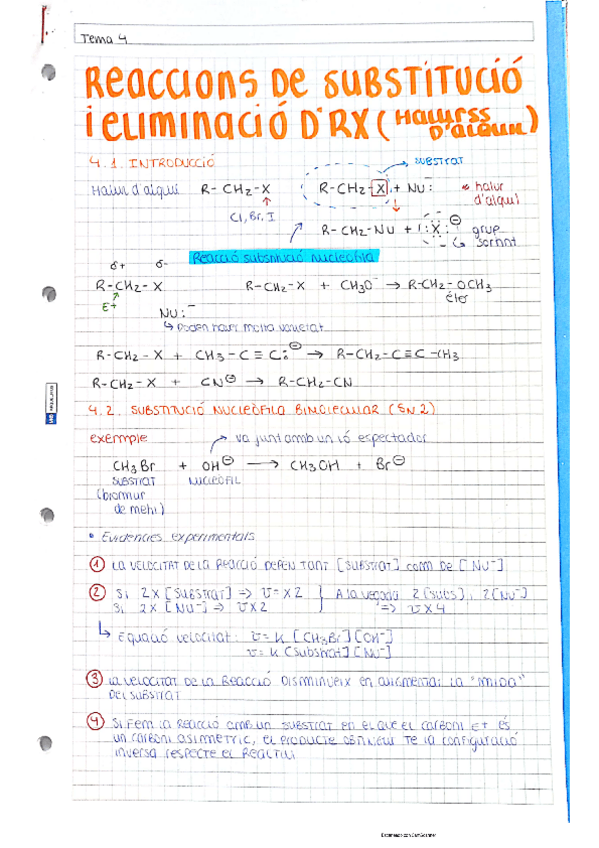 Tema 4
REACCIONS DE SUBSTITUCIÓ
i ELIMINACIÓ D'RX (HALURSS D'ALQUIL)
4.1. INTRODUCCIÓ
SUBSTRAT
Halur d'alquil R-CH₂-X R-CH₂-X + NU: halur d'alquil
Cl, Br, I
R-CH₂-NU + :X:⊖ grup sortint
Reacció substitució nucleòfila
δ+ δ-
R-CH₂-X R-CH₂-X + CH₃O⁻ → R-CH₂-OCH₃
E+ èter
NU:⁻
↳ Poden haver molta varietat
R-CH₂-X + CH₃-C≡C:⊖ → R-CH₂-C≡C-CH₃
R-CH₂-X + CN⊖ → R-CH₂-CN
4.2. SUBSTITUCIÓ NUCLEÒFILA BIMOLECULAR (SN2)
exemple va junt amb un ió espectador
CH₃Br + OH⊖ → CH₃OH + Br⊖
SUBSTRAT NUCLEÒFIL
(bromur
de metil)
• Evidències experimentals
1 LA VELOCITAT DE LA REACCIÓ DEPÈN TANT [SUBSTRAT] COM DE [NU⁻]
2 Si 2x [SUBSTRAT] ⇒ v = x2 } A la vegada 2[subs], 2[NU⁻]
Si 2x [NU⁻] ⇒ v x2 ⇒ v x4
↳ Equació velocitat: v = k [CH₃Br][OH⁻]
v = k [Substrat][NU⁻]
3 LA VELOCITAT DE LA REACCIÓ DISMINUEIX en augmentar la "MIDA"
DEL SUBSTRAT
4 Si FEM LA REACCIÓ AMB UN SUBSTRAT EN EL QUE EL CARBONI E+ ÉS
UN CARBONI ASIMÈTRIC, EL PRODUCTE OBTINGUT TÉ LA CONFIGURACIÓ
INVERSA RESPECTE EL REACTIU